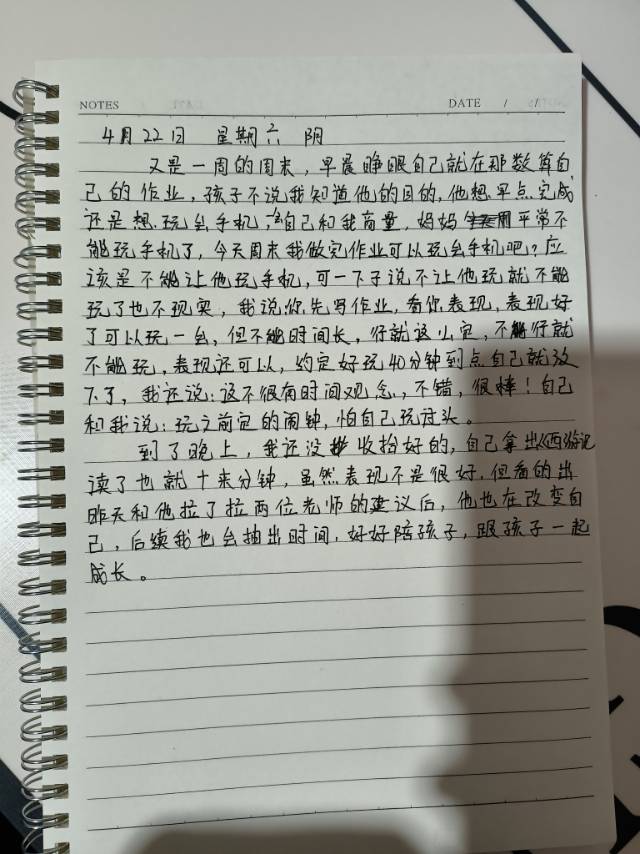 NOTES DATE / /
4月22日 星期六 阴
又是一周的周末，早晨睁眼自己就在那数算自
己的作业，孩子不说我知道他的目的，他想早点完成
还是想玩会手机，自己和我商量，妈妈平常不
能玩手机了，今天周末我做完作业可以玩会手机吧？应
该是不能让他玩手机，可一下子说不让他玩就不能
玩了也不现实，我说你先写作业，看你表现，表现好
了可以玩一会，但不能时间长，行就这么定，不行就
不能玩，表现还可以，约定好玩40分钟到点自己就放
下了，我还说：这不很有时间观念，不错，很棒！自己
和我说：玩之前定的闹钟，怕自己玩过头。
到了晚上，我还没收拾好的，自己拿出《西游记
读了也就十来分钟，虽然表现不是很好，但看的出
昨天和他拉了拉两位老师的建议后，他也在改变自
己，后续我也会抽出时间，好好陪孩子，跟孩子一起
成长。